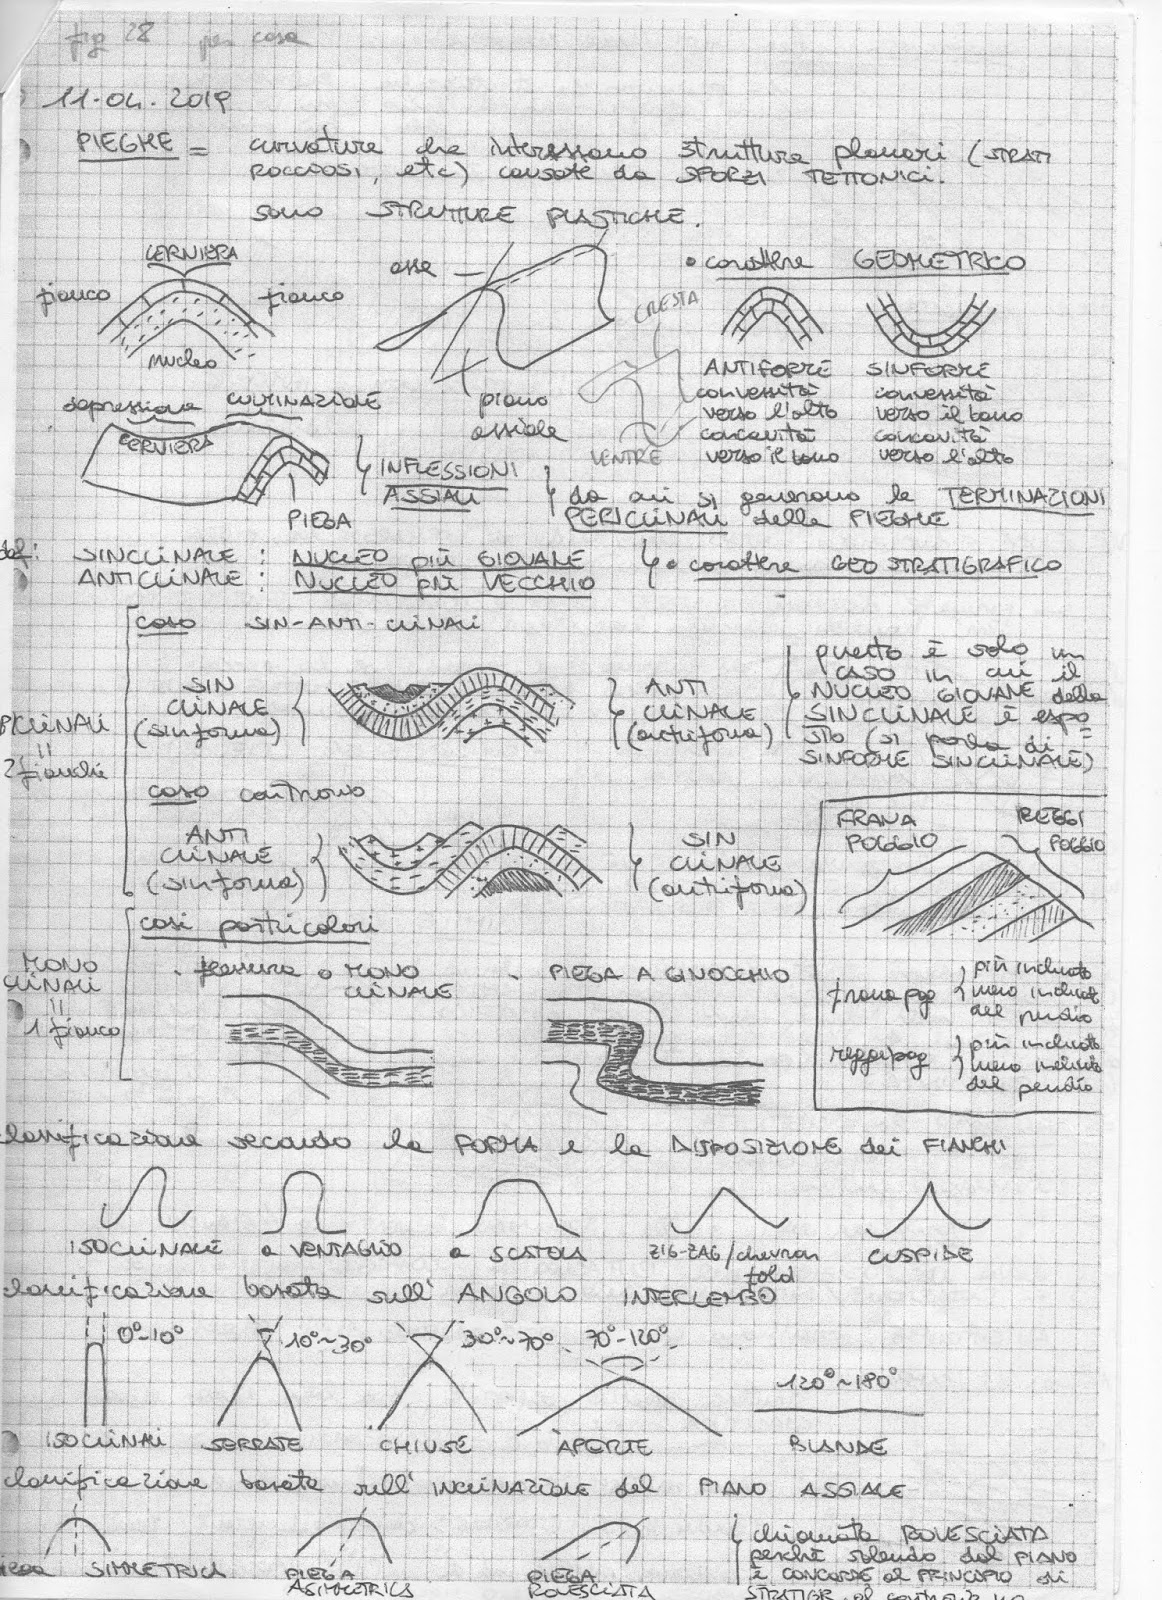 fig 28 per casa
11-04-2019
PIEGHE = curvature che interessano strutture planari (STRATI
ROCCIOSI, etc) causate da SFORZI TETTONICI.
sono STRUTTURE PLASTICHE.
CERNIERA
fianco
fianco
nucleo
asse
piano
assiale
CRESTA
VENTRE
• carattere GEOMETRICO
ANTIFORME
convessità
verso l'alto
concavità
verso il basso
SINFORME
convessità
verso il basso
concavità
verso l'alto
depressione CULMINAZIONE
CERNIERA
PIEGA
INFLESSIONI
ASSIALI
da cui si generano le TERMINAZIONI
PERICLINALI delle PIEGHE
def: SINCLINALE : NUCLEO più GIOVANE
ANTICLINALE : NUCLEO più VECCHIO
• carattere GEOSTRATIGRAFICO
caso SIN-ANTI-CLINALI
SIN
CLINALE
(sinforma)
ANTI
CLINALE
(antiforma)
questo è solo un
CASO in cui il
NUCLEO GIOVANE della
SINCLINALE è espo=
sto (si parla di
SINFORME SINCLINALE)
CLINALI
=
2 fianchi
caso contrario
ANTI
CLINALE
(sinforma)
SIN
CLINALE
(antiforma)
FRANA
POGGIO
REGGI
POGGIO
franapog
più inclinato
meno inclinato
del pendio
reggipog
più inclinato
meno inclinato
del pendio
casi particolari
MONO
CLINALI
=
1 fianco
- flessura o MONO
CLINALE
- PIEGA A GINOCCHIO
classificazione secondo la FORMA e la DISPOSIZIONE dei FIANCHI
ISOCLINALE a VENTAGLIO a SCATOLA ZIG-ZAG/chevron
fold
CUSPIDE
classificazione basata sull'ANGOLO INTERLEMBO
0°-10° 10°~30° 30°~70° 70°-120° 120°~180°
ISOCLINALI SERRATE CHIUSE APERTE BLANDE
classificazione basata sull'INCLINAZIONE del PIANO ASSIALE
piega SIMMETRICA
PIEGA
ASIMMETRICA
PIEGA
ROVESCIATA
chiamata ROVESCIATA
perché salendo dal PIANO
è CONCORDE al PRINCIPIO di